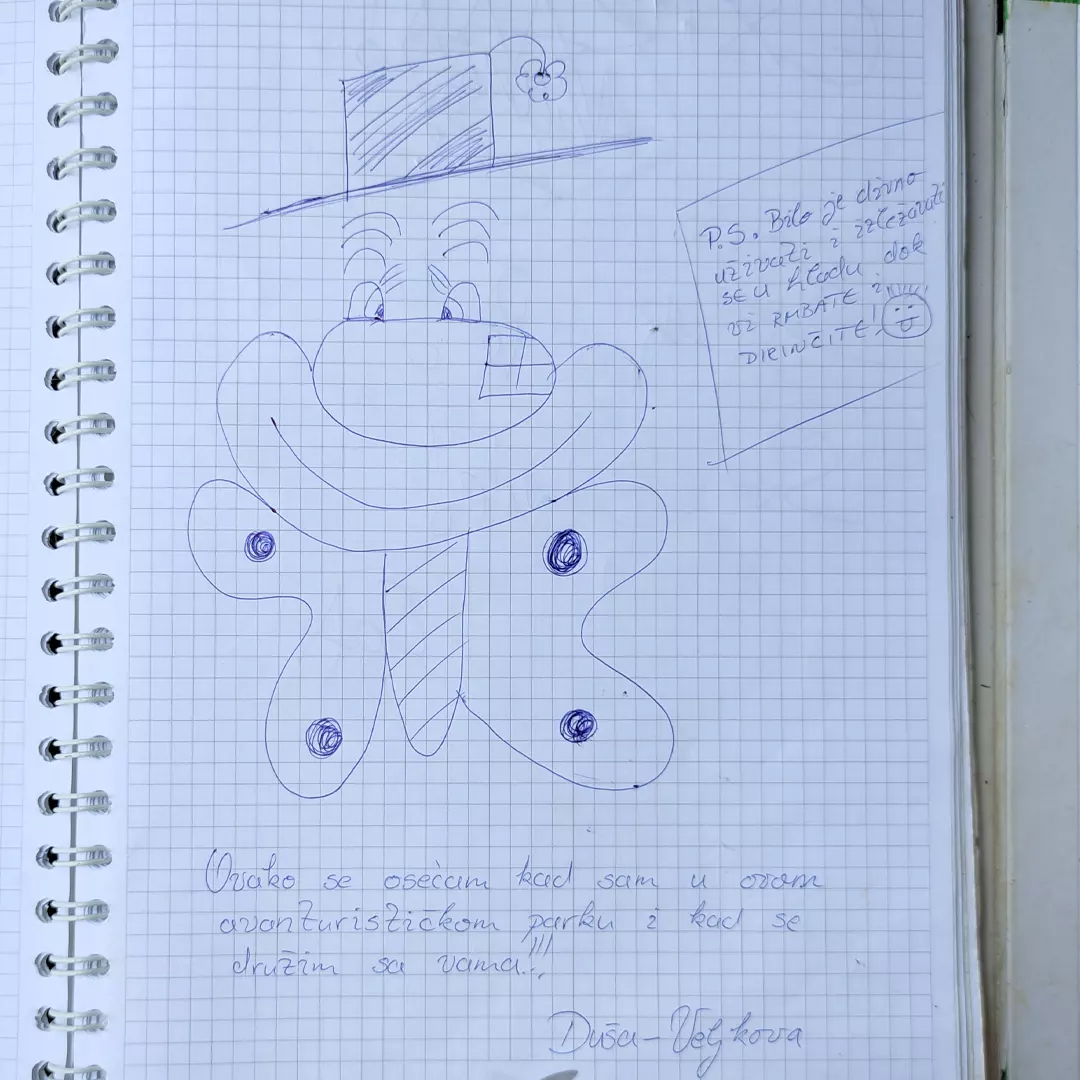 P.S. Bilo je divno
uživati i izležavati
se u hladu dok
vi RMBATE i
DIRINČITE!
Ovako se osećam kad sam u ovom
avanturističkom parku i kad se
družim sa vama!!!
Duša-Veljkova